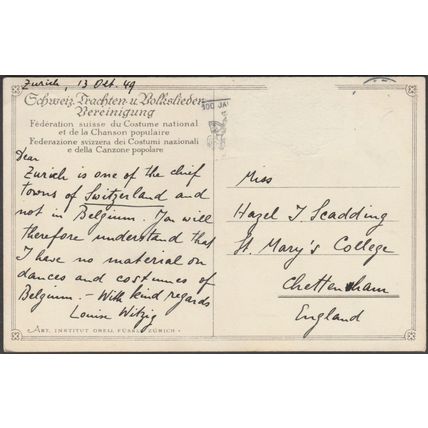 Zurich, 13 Okt. 49
Schweiz. Trachten u. Volkslieder-
Vereinigung
Fédération suisse du Costume national
et de la Chanson populaire
Federazione svizzera dei Costumi nazionali
e della Canzone popolare
Dear
Zurich is one of the chief
towns of Switzerland and
not in Belgium. You will
therefore understand that
I have no material on
dances and costumes of
Belgium. – With kind regards
Louise Witzig
ART. INSTITUT ORELL FÜSSLI, ZÜRICH
100 JA
Miss
Hazel J Scadding
St. Mary's College
Chettenham
England